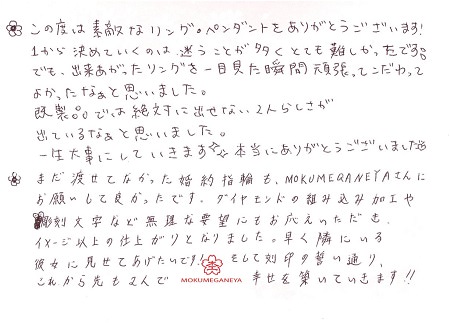 この度は素敵なリング。ペンダントをありがとうございます!
1から決めていくのは迷うことが多くとても難しかったです。
でも、出来あがったリングを一目見た瞬間頑張ってこだわって
よかったなぁと思いました。
既製品では絶対に出せない2人らしさが
出ているなぁと思いました。
一生大事にしていきます☆☆本当にありがとうございました
まだ渡せてなかった婚約指輪も、MOKUMEGANEYAさんに
お願いして良かったです。ダイヤモンドの組み込み加工や
彫刻文字など無理な要望にもお応えいただき、
イメージ以上の仕上がりとなりました。早く隣にいる
彼女に見せてあげたいです! そして刻印の誓い通り、
これから先も2人で 幸せを築いていきます!!
MOKUMEGANEYA